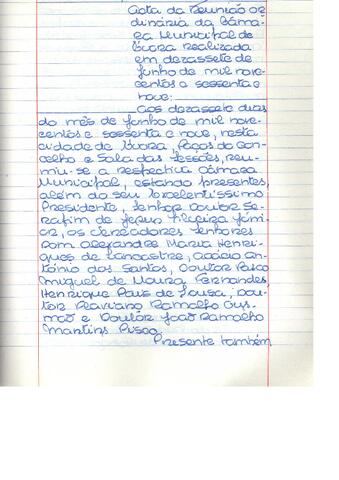 Acta da Reunião or
dinária da Câma-
ra Municipal de
Évora realizada
em dezassete de
Junho de mil nove-
centos e sessenta e
nove:
Aos dezassete dias
do mês de Junho de mil nove-
centos e sessenta e nove, nesta
cidade de Évora, Paços do Con-
celho e Sala das Sessões, reu-
niu-se a respectiva Câmara
Municipal, estando presentes,
além do seu Excelentíssimo
Presidente, Senhor Doutor Se-
rafim de Jesus Silveira Júni-
or, os Vereadores Senhores
Dom Alexandre Maria Henri-
ques de Lancastre, Acácio An-
tónio dos Santos, Doutor Vasco
Miguel de Moura Fernandes,
Henrique Pais de Sousa, Dou-
tor Ramalho Gus-
mão e Doutor João Ramalho
Martins
Presente também